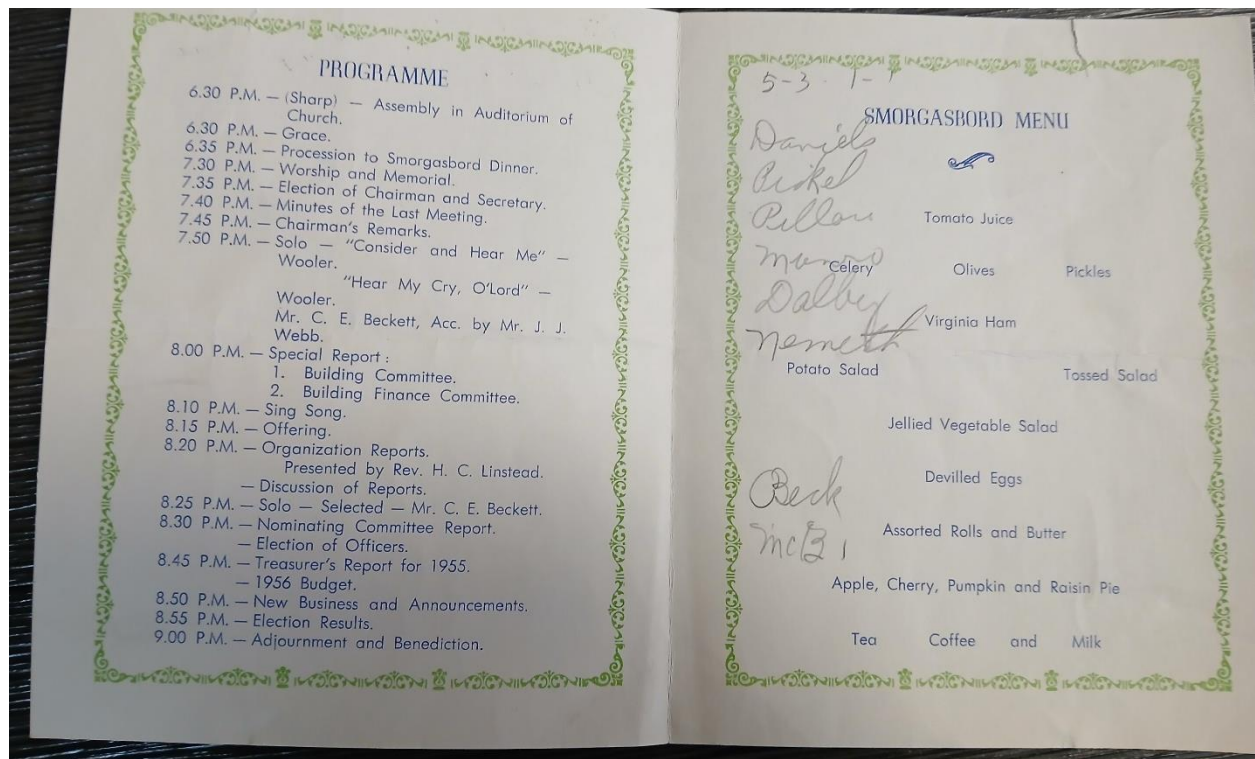 PROGRAMME
6.30 P.M. — (Sharp) — Assembly in Auditorium of
Church.
6.30 P.M. — Grace.
6.35 P.M. — Procession to Smorgasbord Dinner.
7.30 P.M. — Worship and Memorial.
7.35 P.M. — Election of Chairman and Secretary.
7.40 P.M. — Minutes of the Last Meeting.
7.45 P.M. — Chairman's Remarks.
7.50 P.M. — Solo — "Consider and Hear Me" —
Wooler.
"Hear My Cry, O'Lord" —
Wooler.
Mr. C. E. Beckett, Acc. by Mr. J. J.
Webb.
8.00 P.M. — Special Report :
1. Building Committee.
2. Building Finance Committee.
8.10 P.M. — Sing Song.
8.15 P.M. — Offering.
8.20 P.M. — Organization Reports.
Presented by Rev. H. C. Linstead.
— Discussion of Reports.
8.25 P.M. — Solo — Selected — Mr. C. E. Beckett.
8.30 P.M. — Nominating Committee Report.
— Election of Officers.
8.45 P.M. — Treasurer's Report for 1955.
— 1956 Budget.
8.50 P.M. — New Business and Announcements.
8.55 P.M. — Election Results.
9.00 P.M. — Adjournment and Benediction.
5-3 1-1
SMORGASBORD MENU
Daniels
Tomato Juice
Munro
Celery Olives Pickles
Dalby
Virginia Ham
Nemeth
Potato Salad Tossed Salad
Jellied Vegetable Salad
Devilled Eggs
Beck
Assorted Rolls and Butter
McB
Apple, Cherry, Pumpkin and Raisin Pie
Tea Coffee and Milk